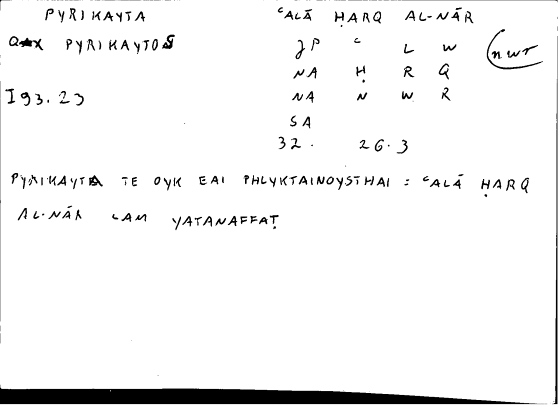 PYRIKAYTA ʿALĀ ḤARQ AL-NĀR
PYRIKAYTOS JP ʿ L W nwr
NA Ḥ R Q
I 93.23 NA N W R
SA
32. 26.3
PYRIKAYTA TE OYK EAI PHLYKTAINOYSTHAI : ʿALĀ ḤARQ
AL-NĀR LAM YATANAFFAṬ